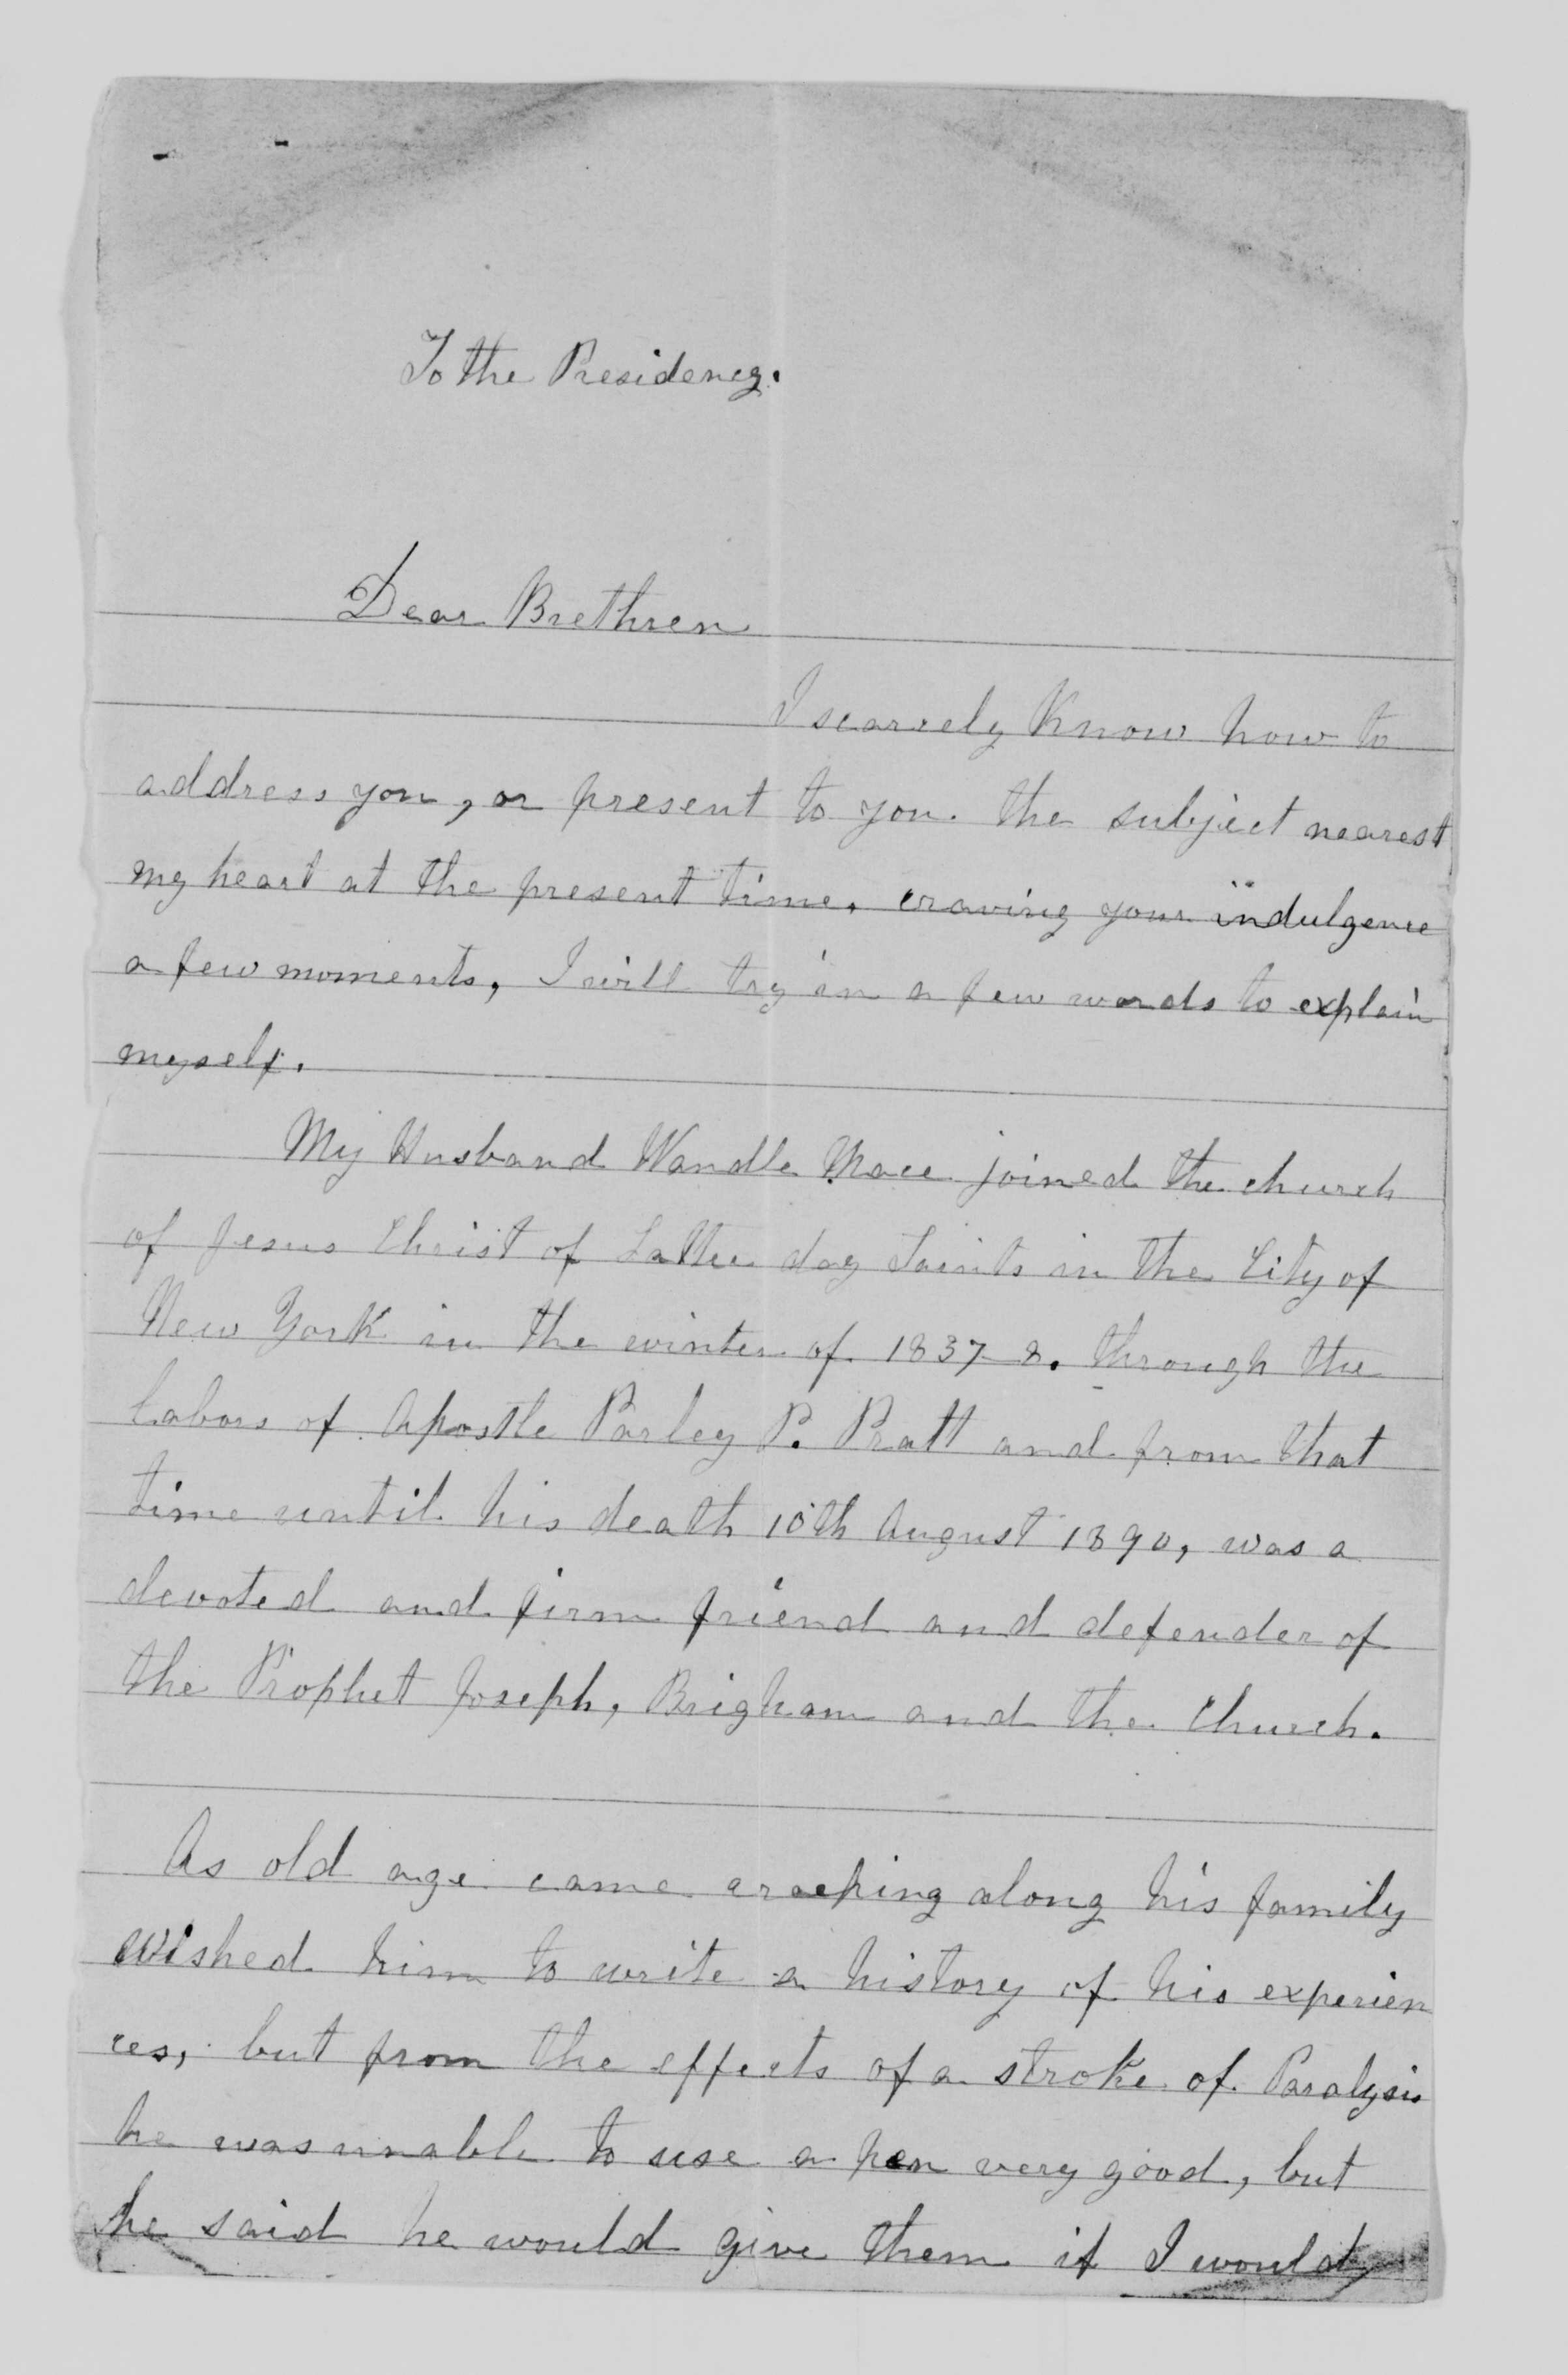 To the Presidency.
Dear Brethren
I scarcely Know how to
address you, or present to you the subject nearest
my heart at the present time. craving your indulgence
a few moments, I will try in a few words to explain
myself.
My Husband Wandle Mace joined the church
of Jesus Christ of Latter day Saints in the City of
New York in the winter of 1837-8. through the
labors of Apostle Parley P. Pratt and from that
time until his death 10th August 1890, was a
devoted and firm friend and defender of
the Prophet Joseph, Brigham and the Church.
As old age came creeping along his family
wished him to write a history of his experien
ces, but from the effects of a stroke of Paralysis
he was unable to use a pen very good, but
he said he would give them if I would